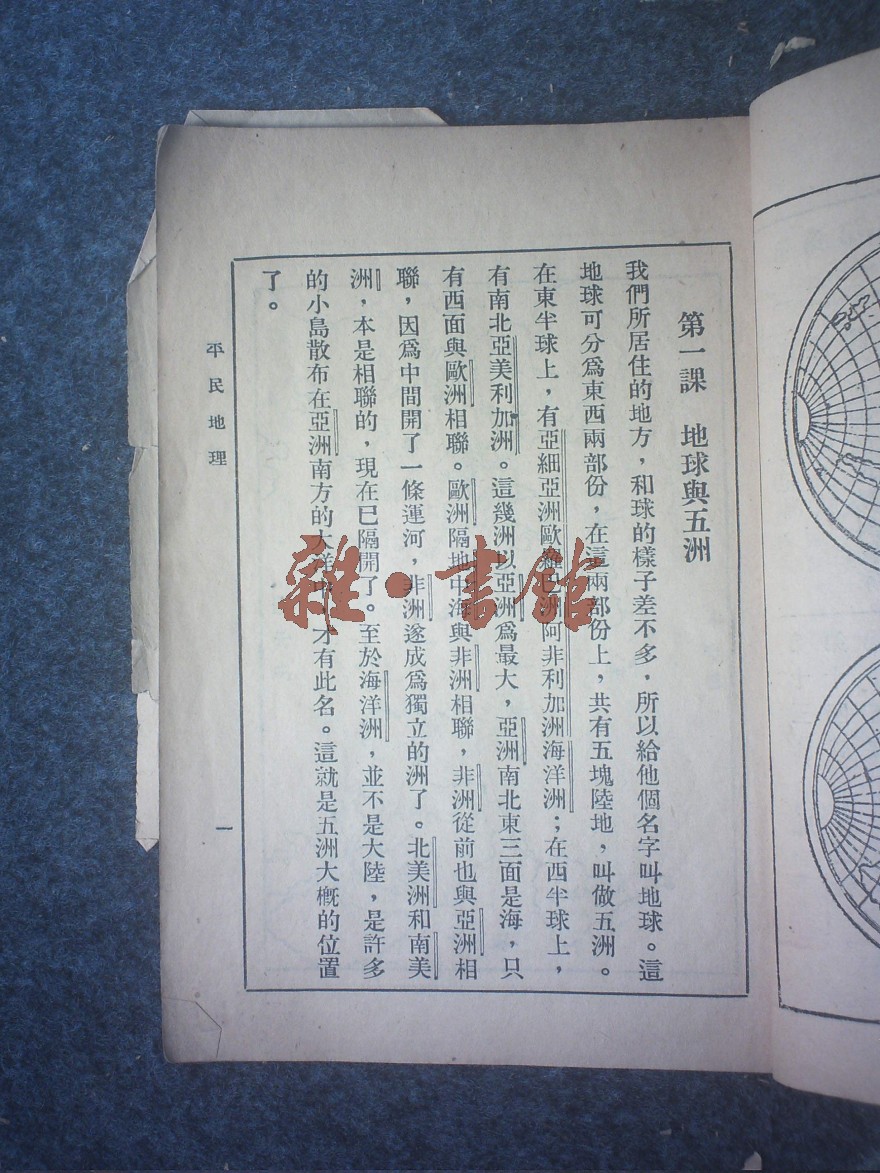 第一課　地球與五洲
我們所居住的地方，和球的樣子差不多，所以給他個名字叫地球。這
地球可分爲東西兩部份，在這兩部份上，共有五塊陸地，叫做五洲。
在東半球上，有亞細亞洲歐羅巴洲阿非利加洲海洋洲；在西半球上，
有南北亞美利加洲。這幾洲以亞洲爲最大，亞洲南北東三面是海，只
有西面與歐洲相聯。歐洲隔地中海與非洲相聯，非洲從前也與亞洲相
聯，因爲中間開了一條運河，非洲遂成爲獨立的洲了。北美洲和南美
洲，本是相聯的，現在已隔開了。至於海洋洲，並不是大陸，是許多
的小島散布在亞洲南方的大洋才有此名。這就是五洲大槪的位置
了。
平民地理
一
雜·書館